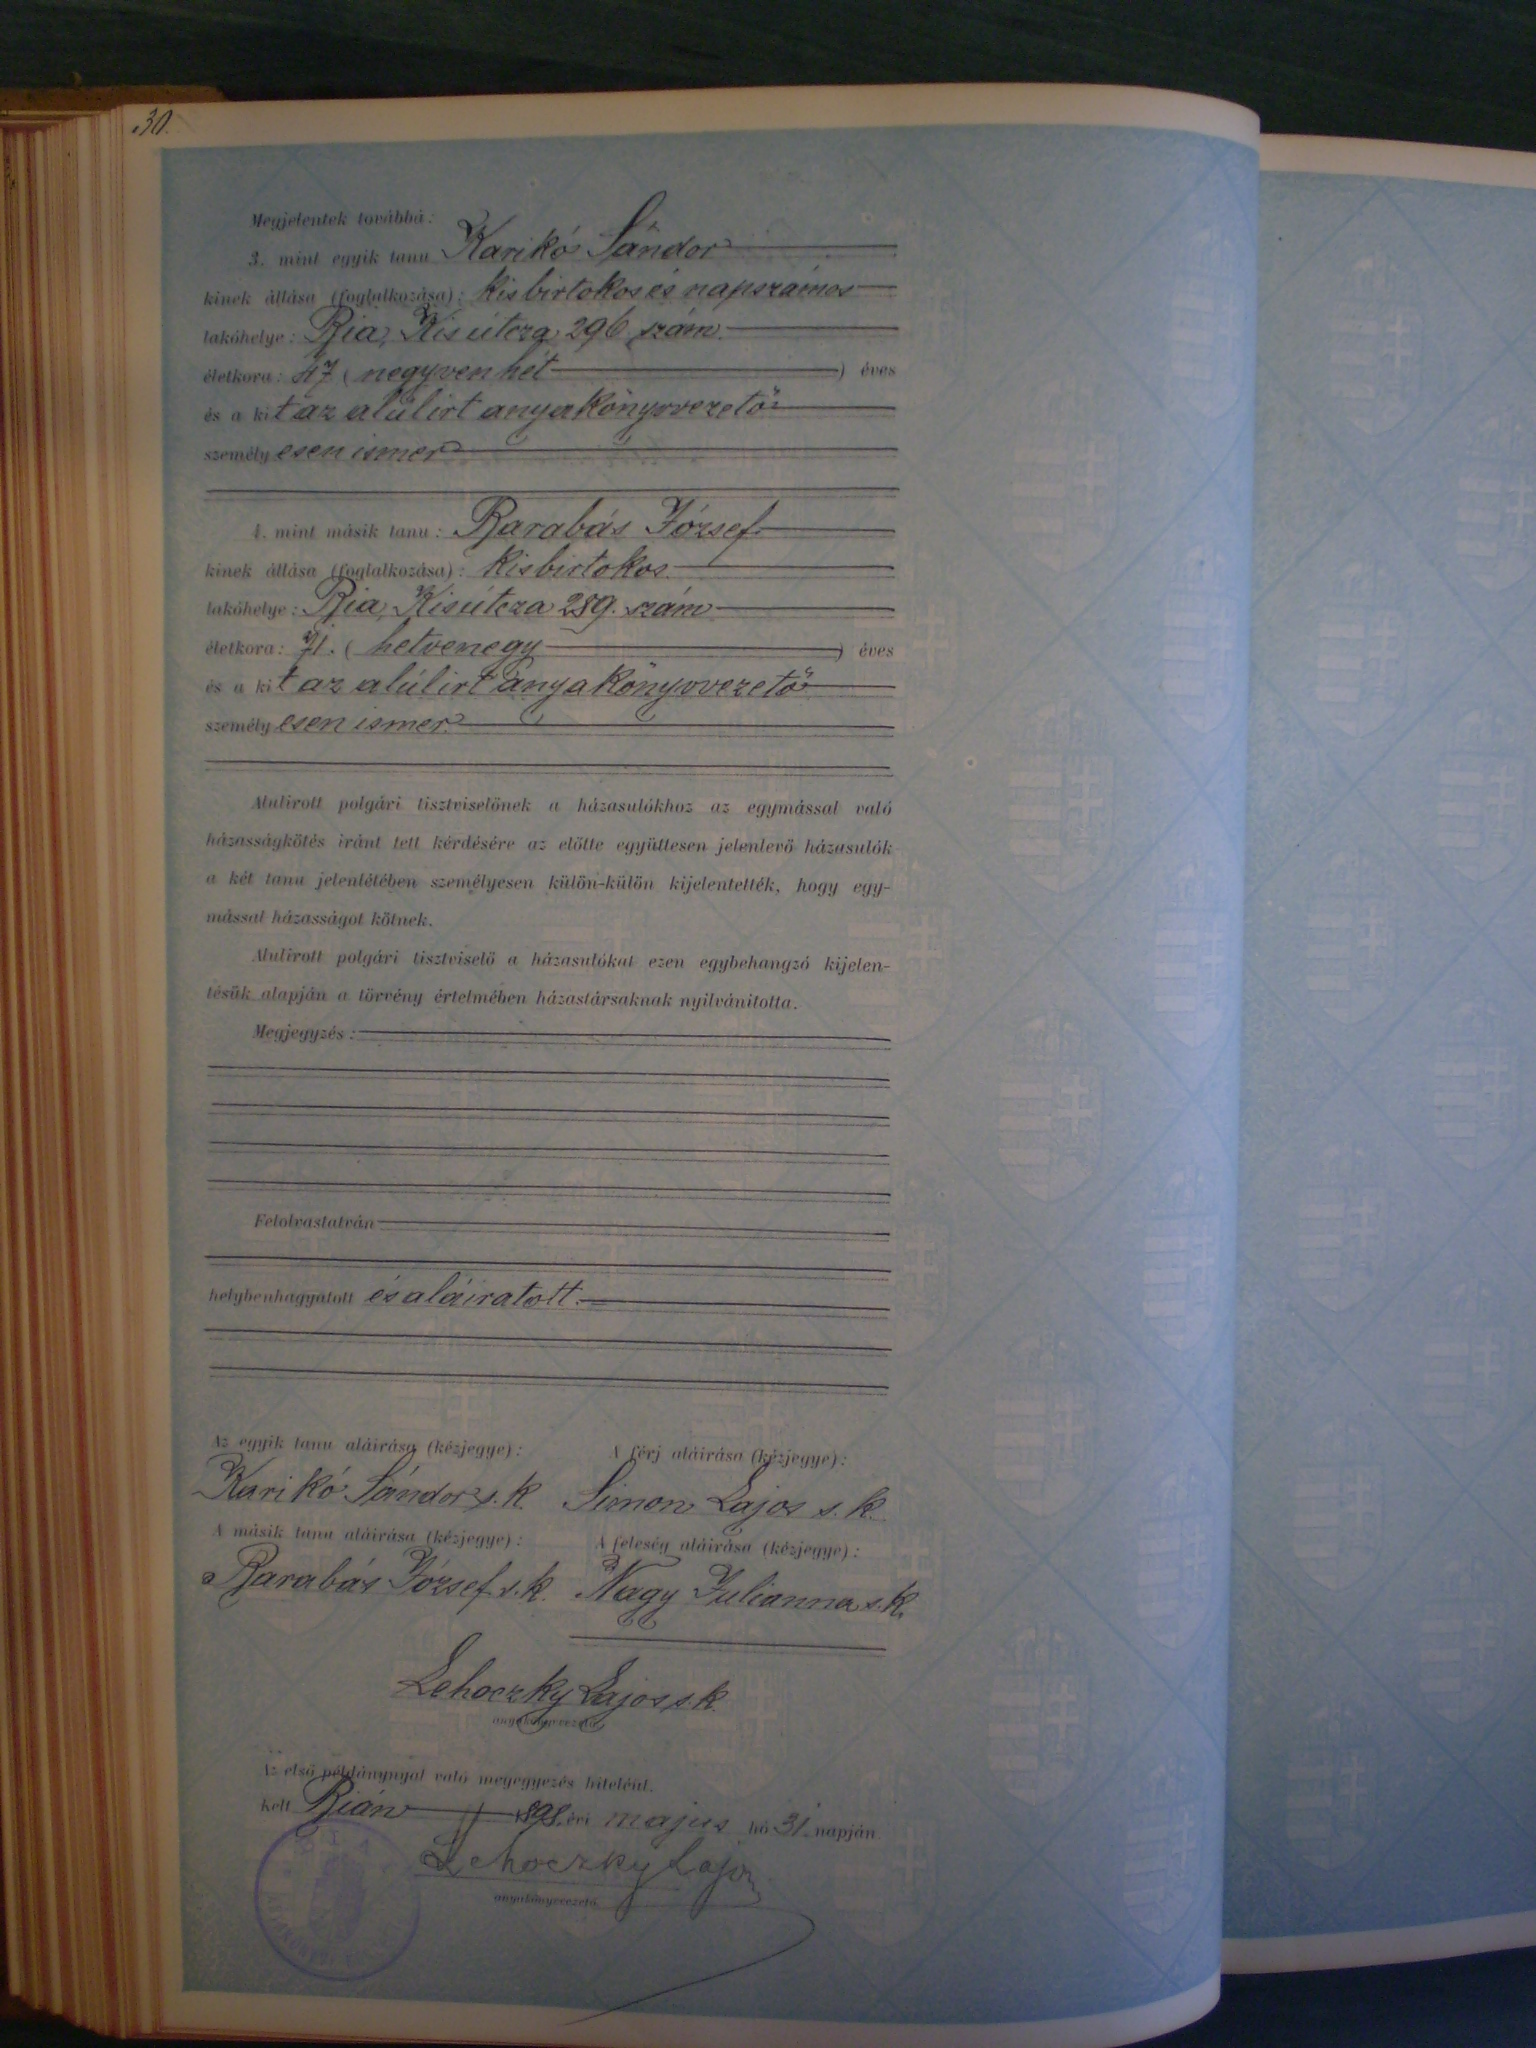 30.
Megjelentek továbbá:
3. mint egyik tanu Karikó Sándor
kinek állása (foglalkozása): kisbirtokos és napszámos
lakóhelye: Bia, Kisútcza 296 szám.
életkora: 47 ( negyvenhét ) éves
és a kit az alúlirt anyakönyvvezető
személyesen ismer
4. mint másik tanu: Barabás József
kinek állása (foglalkozása): kisbirtokos
lakóhelye: Bia, Kisútcza 289. szám
életkora: 71. ( hetvenegy ) éves
és a kit az alúlirt anyakönyvvezető
személyesen ismer.
Alulirott polgári tisztviselőnek a házasulókhoz az egymással való
házasságkötés iránt tett kérdésére az előtte együttesen jelenlevő házasulók
a két tanu jelenlétében személyesen külön-külön kijelentették, hogy egy-
mással házasságot kötnek.
Alulirott polgári tisztviselő a házasulókat ezen egybehangzó kijelen-
tésük alapján a törvény értelmében házastársaknak nyilvánitotta.
Megjegyzés:
Felolvastatván
helybenhagyatott és aláiratott.
Az egyik tanu aláirása (kézjegye): A férj aláirása (kézjegye):
Karikó Sándor s. k. Simon Lajos s. k.
A másik tanu aláirása (kézjegye): A feleség aláirása (kézjegye):
Barabás József s. k. Nagy Julianna s. k.
Lehoczky Lajos s. k.
anyakönyvvezető.
Az első példánynyal való megegyezés hiteléül.
kelt Bián 1898. évi majus hó 31. napján
Lehoczky Lajos
anyakönyvvezető.
BIAI